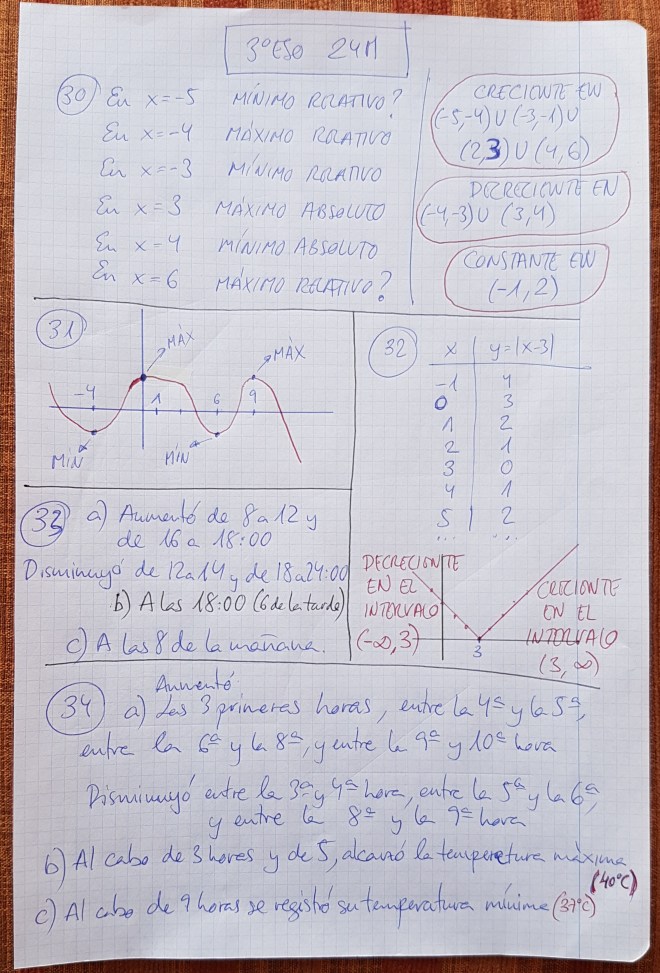 3º ESO 24M
30) En x=-5 MÍNIMO RELATIVO?
En x=-4 MÁXIMO RELATIVO
En x=-3 MÍNIMO RELATIVO
En x=3 MÁXIMO ABSOLUTO
En x=4 MÍNIMO ABSOLUTO
En x=6 MÁXIMO RELATIVO?
CRECIENTE EN
(-5,-4)∪(-3,-1)∪
(2,3)∪(4,6)
DECRECIENTE EN
(-4,-3)∪(3,4)
CONSTANTE EN
(-1,2)
31)
MÁX
MÁX
-4 1 6 9
MÍN
MÍN
32) x y=|x-3|
-1 4
0 3
1 2
2 1
3 0
4 1
5 2
... ...
DECRECIENTE
EN EL
INTERVALO
(-∞,3)
3
CRECIENTE
EN EL
INTERVALO
(3,∞)
33) a) Aumentó de 8 a 12 y
de 16 a 18:00
Disminuyó de 12 a 14 y de 18 a 24:00
b) A las 18:00 (6 de la tarde)
c) A las 8 de la mañana.
Aumentó
34) a) Las 3 primeras horas, entre la 4ª y la 5ª,
entre la 6ª y la 8ª, y entre la 9ª y 10ª hora
Disminuyó entre la 3ª y 4ª hora, entre la 5ª y la 6ª,
y entre la 8ª y la 9ª hora
b) Al cabo de 3 horas y de 5, alcanzó la temperatura máxima
(40ºC)
c) Al cabo de 9 horas se registró su temperatura mínima (37ºC)